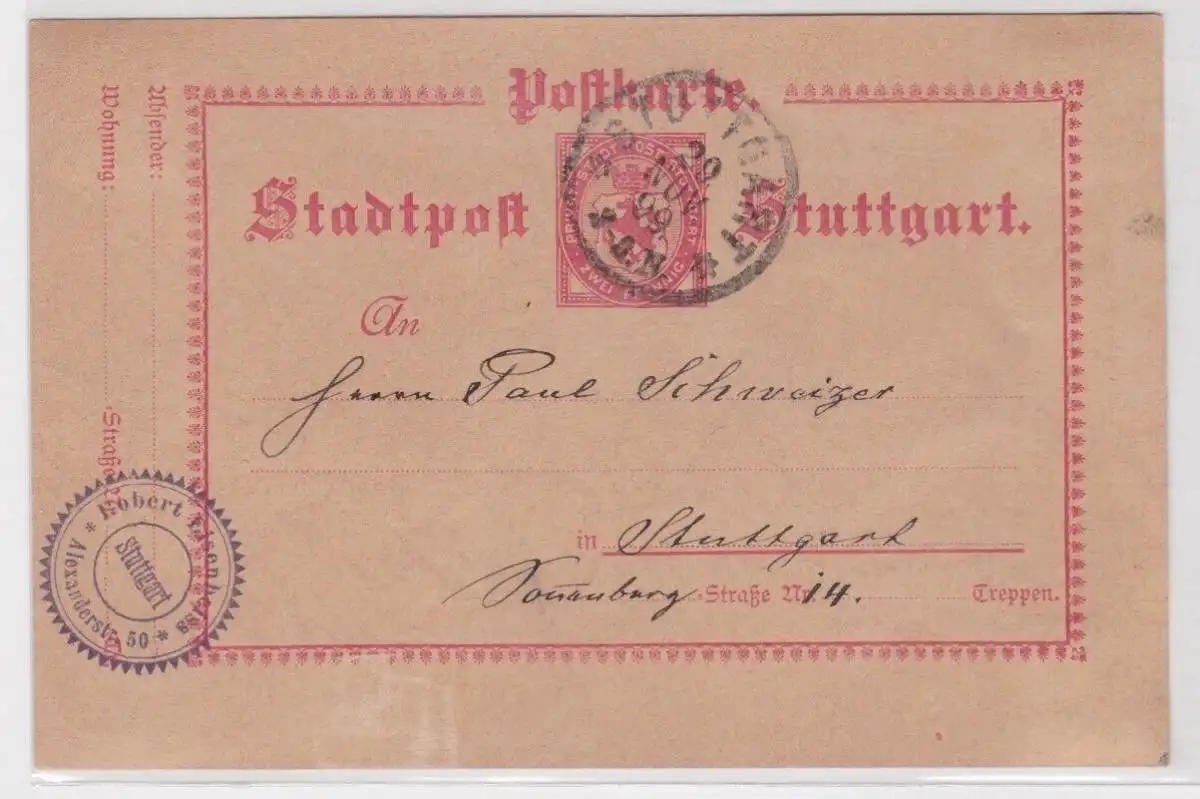 Postkarte.
Stadtpost Stuttgart.
PRIVAT STADTPOST STUTTGART
ZWEI PFENNIG
STUTTGART
20
NOV
99
An
Herrn Paul Schweizer
in Stuttgart
Sonnenberg Straße Nr. 14. Treppen.
Absender:
Wohnung:
Straße
Robert
Stuttgart
Alexanderstr. 50